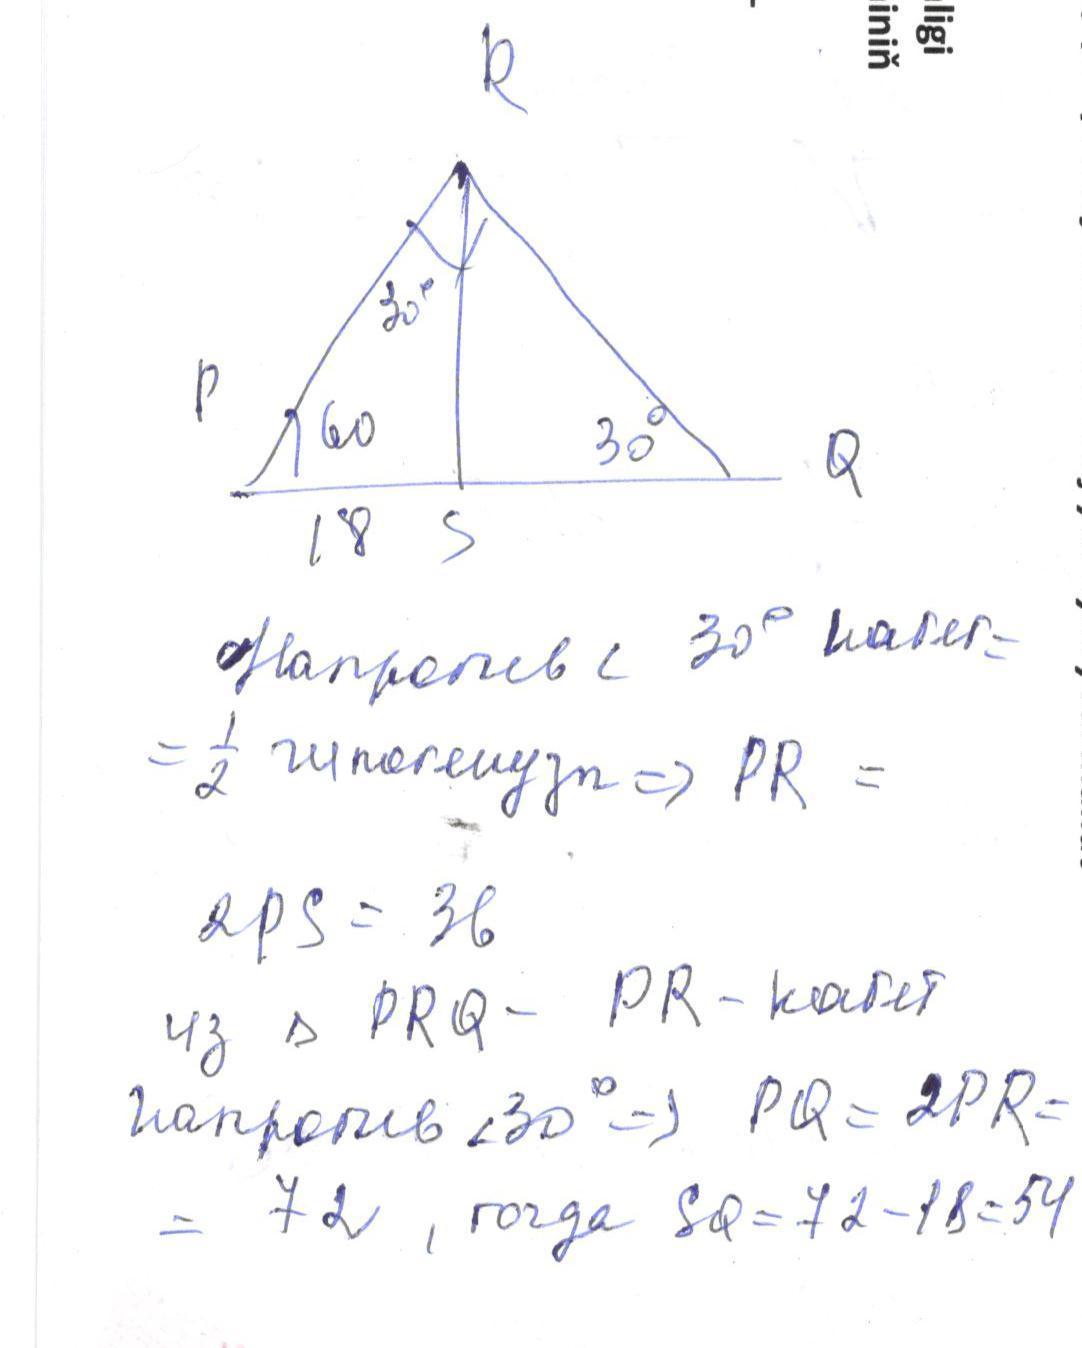 ligi
iniň
R
30°
P
60
30°
Q
18 S
Напротив < 30° катет=
= 1/2 гипотенузы => PR =
2PS = 36
из △ PRQ - PR - катет
напротив <30° => PQ = 2PR=
= 72, тогда SQ = 72-18=54